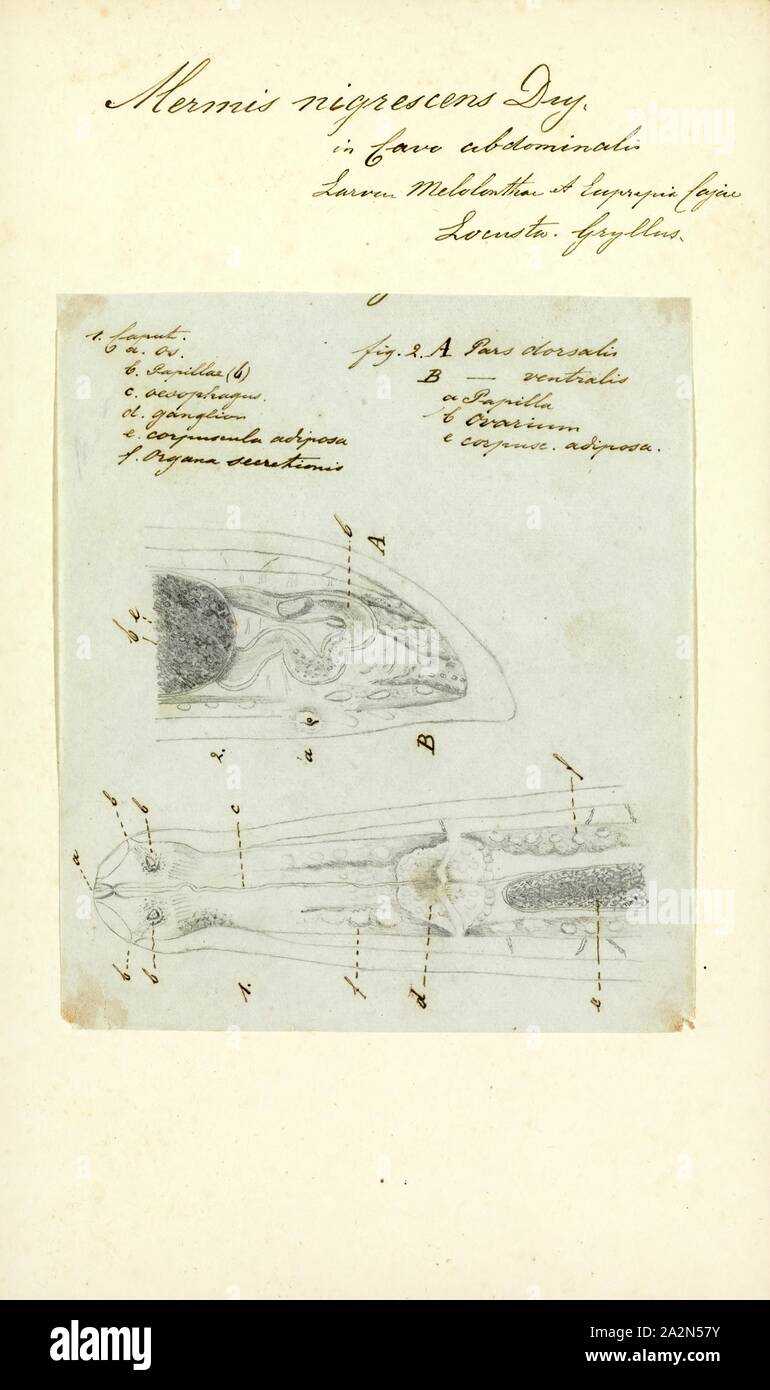 Mermis nigrescens Duj.
in Cavo abdominalis
Larvae Melolonthae et Euprepia Cajae
Locusta. Gryllus.
1. Caput.
a. Os.
b. Papillae (6)
c. oesophagus.
d. ganglion
e. corpuscula adiposa
f. Organa secretionis
fig. 2. A Pars dorsalis
B — ventralis
a Papilla
b Ovarium
e corpusc. adiposa.
b
A
b e
2.
a
B
f
b
b
c
a
b
b
1.
f
d
e
alamy
alamy
Image ID: 2A2N57Y
www.alamy.com